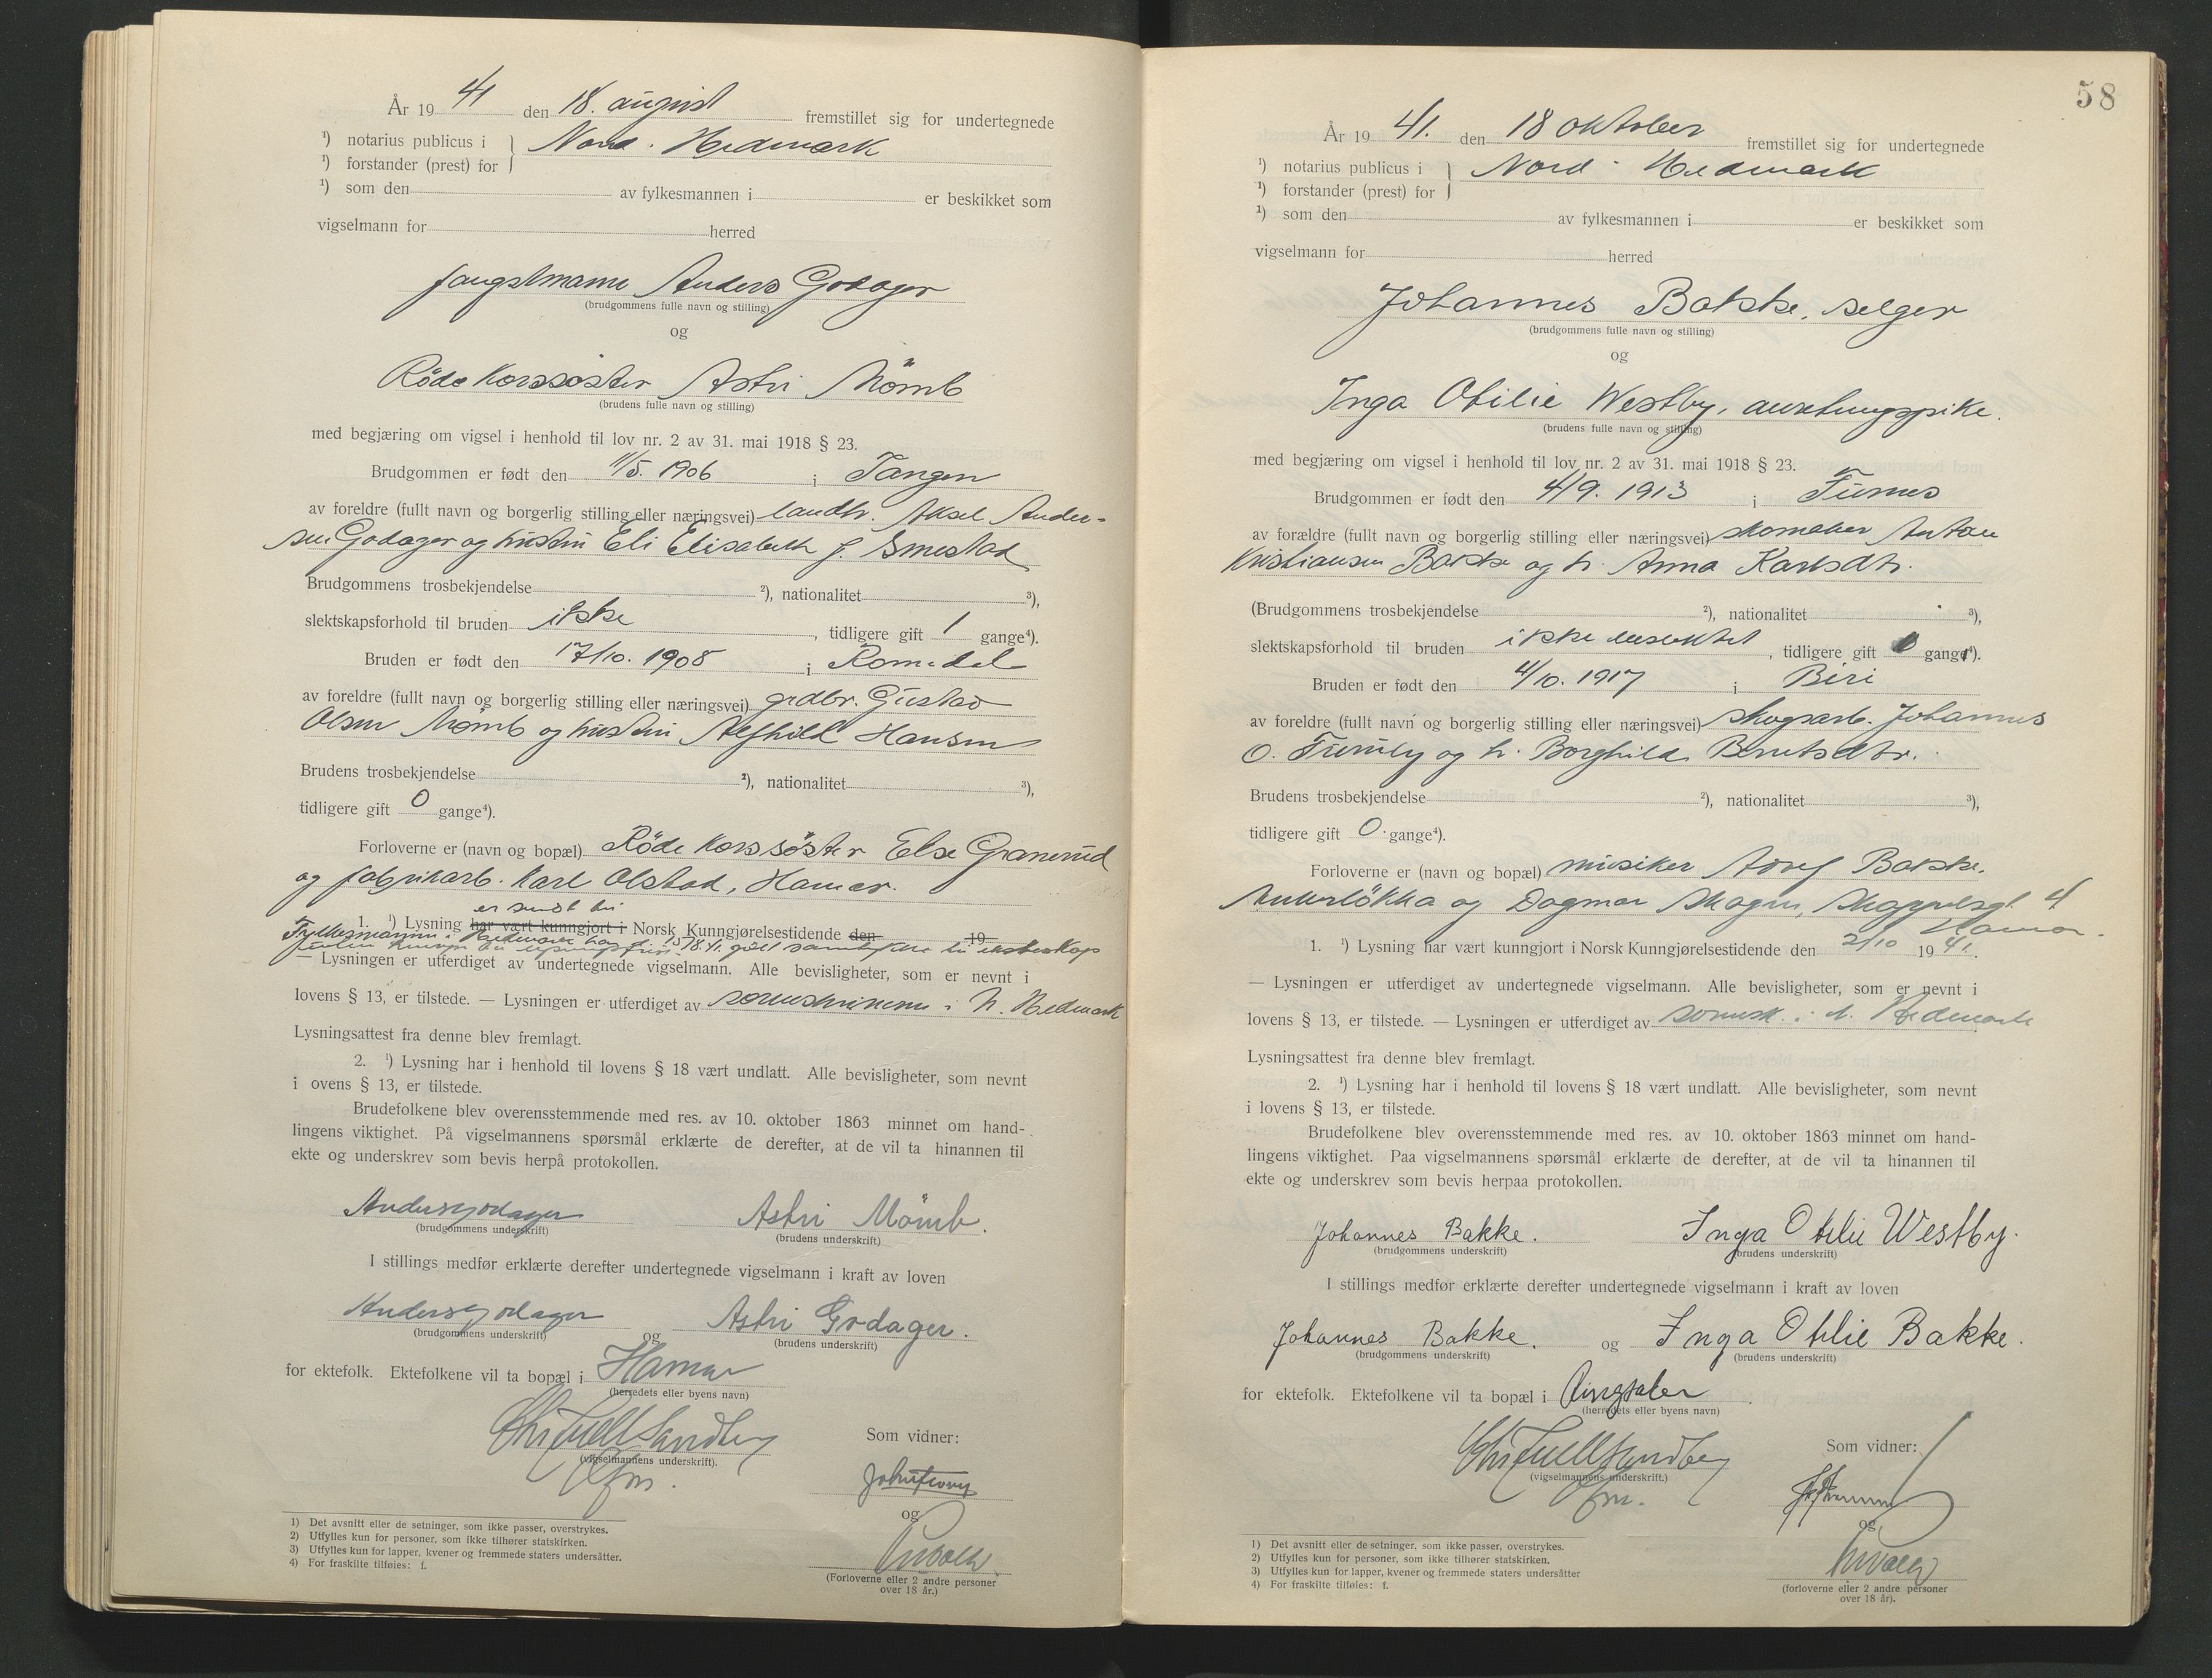 År 19 41 den 18. august fremstillet sig for undertegnede
¹) notarius publicus i } Nord-Hedmark
¹) forstander (prest) for
¹) som den av fylkesmannen i er beskikket som
vigselmann for herred
fangstmann Anders Godager
(brudgommens fulle navn og stilling)
og
Röde Korssöster Astri Mömb
(brudens fulle navn og stilling)
med begjæring om vigsel i henhold til lov nr. 2 av 31. mai 1918 § 23.
Brudgommen er født den 11/5. 1906 i Tangen
av foreldre (fullt navn og borgerlig stilling eller næringsvei) landh. Aksel Ander-
sen Godager og hustru Eli Elisabeth f. Smestad
Brudgommens trosbekjendelse ²), nationalitet ³),
slektskapsforhold til bruden ikke , tidligere gift 1 gange⁴).
Bruden er født den 17/10. 1908 i Romedal
av foreldre (fullt navn og borgerlig stilling eller næringsvei) grdbr. Gustav
Olsen Mömb og hustru Alfhild Hansen
Brudens trosbekjendelse ²), nationalitet ³),
tidligere gift 0 gange⁴).
Forloverne er (navn og bopæl) Röde Korssöster Else Granerud
og fabrikarb. Karl Olstad, Hamar.
er sendt til
1. ¹) Lysning har vært kunngjort i Norsk Kunngjørelsestidende den 19
Fylkesmannen i Hedmark har 15/8.41. gitt samtykke til ekteskap
— Lysningen er utferdiget av undertegnede vigselmann. Alle bevisligheter, som er nevnt i
lovens § 13, er tilstede. — Lysningen er utferdiget av sorenskriveren i N. Hedmark
Lysningsattest fra denne blev fremlagt.
2. ¹) Lysning har i henhold til lovens § 18 vært undlatt. Alle bevisligheter, som nevnt
i ovens § 13, er tilstede.
Brudefolkene blev overensstemmende med res. av 10. oktober 1863 minnet om hand-
lingens viktighet. På vigselmannens spørsmål erklærte de derefter, at de vil ta hinannen til
ekte og underskrev som bevis herpå protokollen.
Anders Godager Astri Mömb.
(brudgommens underskrift) (brudens underskrift)
I stillings medfør erklærte derefter undertegnede vigselmann i kraft av loven
Anders Godager og Astri Godager.
(brudgommens underskrift) (brudens underskrift)
for ektefolk. Ektefolkene vil ta bopæl i Hamar
(herredets eller byens navn)
Sandberg
(vigselmannens underskrift).
Som vidner:
og
(Forloverne eller 2 andre personer
over 18 år.)
1) Det avsnitt eller de setninger, som ikke passer, overstrykes.
2) Utfylles kun for personer, som ikke tilhører statskirken.
3) Utfylles kun for lapper, kvener og fremmede staters undersåtter.
4) For fraskilte tilføies: f.
58
År 19 41. den 18 oktober fremstillet sig for undertegnede
¹) notarius publicus i } Nord-Hedmark
¹) forstander (prest) for
¹) som den av fylkesmannen i er beskikket som
vigselmann for herred
Johannes Bakke, selger
(brudgommens fulle navn og stilling)
og
Inga Otilie Westby, anretningspike.
(brudens fulle navn og stilling)
med begjæring om vigsel i henhold til lov nr. 2 av 31. mai 1918 § 23.
Brudgommen er født den 4/9. 1913 i Furnes
av forældre (fullt navn og borgerlig stilling eller næringsvei) skomaker Anton
Kristiansen Bakke og h. Anna Karlsdtr.
(Brudgommens trosbekjendelse ²), nationalitet ³),
slektskapsforhold til bruden ikke beslektet , tidligere gift 0 gange⁴).
Bruden er født den 4/10. 1917 i Biri
av foreldre (fullt navn og borgerlig stilling eller næringsvei) skogsarb. Johannes
O. og h. Borghild Berntsdtr.
Brudens trosbekjendelse ²), nationalitet ³),
tidligere gift 0 gange⁴).
Forloverne er (navn og bopæl) musiker Bakke,
Ankerlökka og Dagmar Skogen, 4
Hamar.
1. ¹) Lysning har vært kunngjort i Norsk Kunngjørelsestidende den 2/10 19 41.
— Lysningen er utferdiget av undertegnede vigselmann. Alle bevisligheter, som er nevnt i
lovens § 13, er tilstede. — Lysningen er utferdiget av sorensk. i N. Hedmark
Lysningsattest fra denne blev fremlagt.
2. ¹) Lysning har i henhold til lovens § 18 vært undlatt. Alle bevisligheter, som nevnt
i lovens § 13, er tilstede.
Brudefolkene blev overensstemmende med res. av 10. oktober 1863 minnet om hand-
lingens viktighet. Paa vigselmannens spørsmål erklærte de derefter, at de vil ta hinannen til
ekte og underskrev som bevis herpaa protokollen.
Johannes Bakke. Inga Otilie Westby.
(brudgommens underskrift) (brudens underskrift)
I stillings medfør erklærte derefter undertegnede vigselmann i kraft av loven
Johannes Bakke. og Inga Otilie Bakke.
(brudgommens underskrift) (brudens underskrift)
for ektefolk. Ektefolkene vil ta bopæl i Ringsaker
(herredets eller byens navn)
Sandberg
(vigselmannens underskrift.)
Som vidner:
og
(forloverne eller 2 andre personer
over 18 år).
1) Det avsnitt eller de setninger, som ikke passer, overstrykes.
2) Utfylles kun for personer, som ikke tilhører statskirken.
3) Utfylles kun for lapper, kvener og fremmede staters undersåtter
4) For fraskilte tilføies: f.